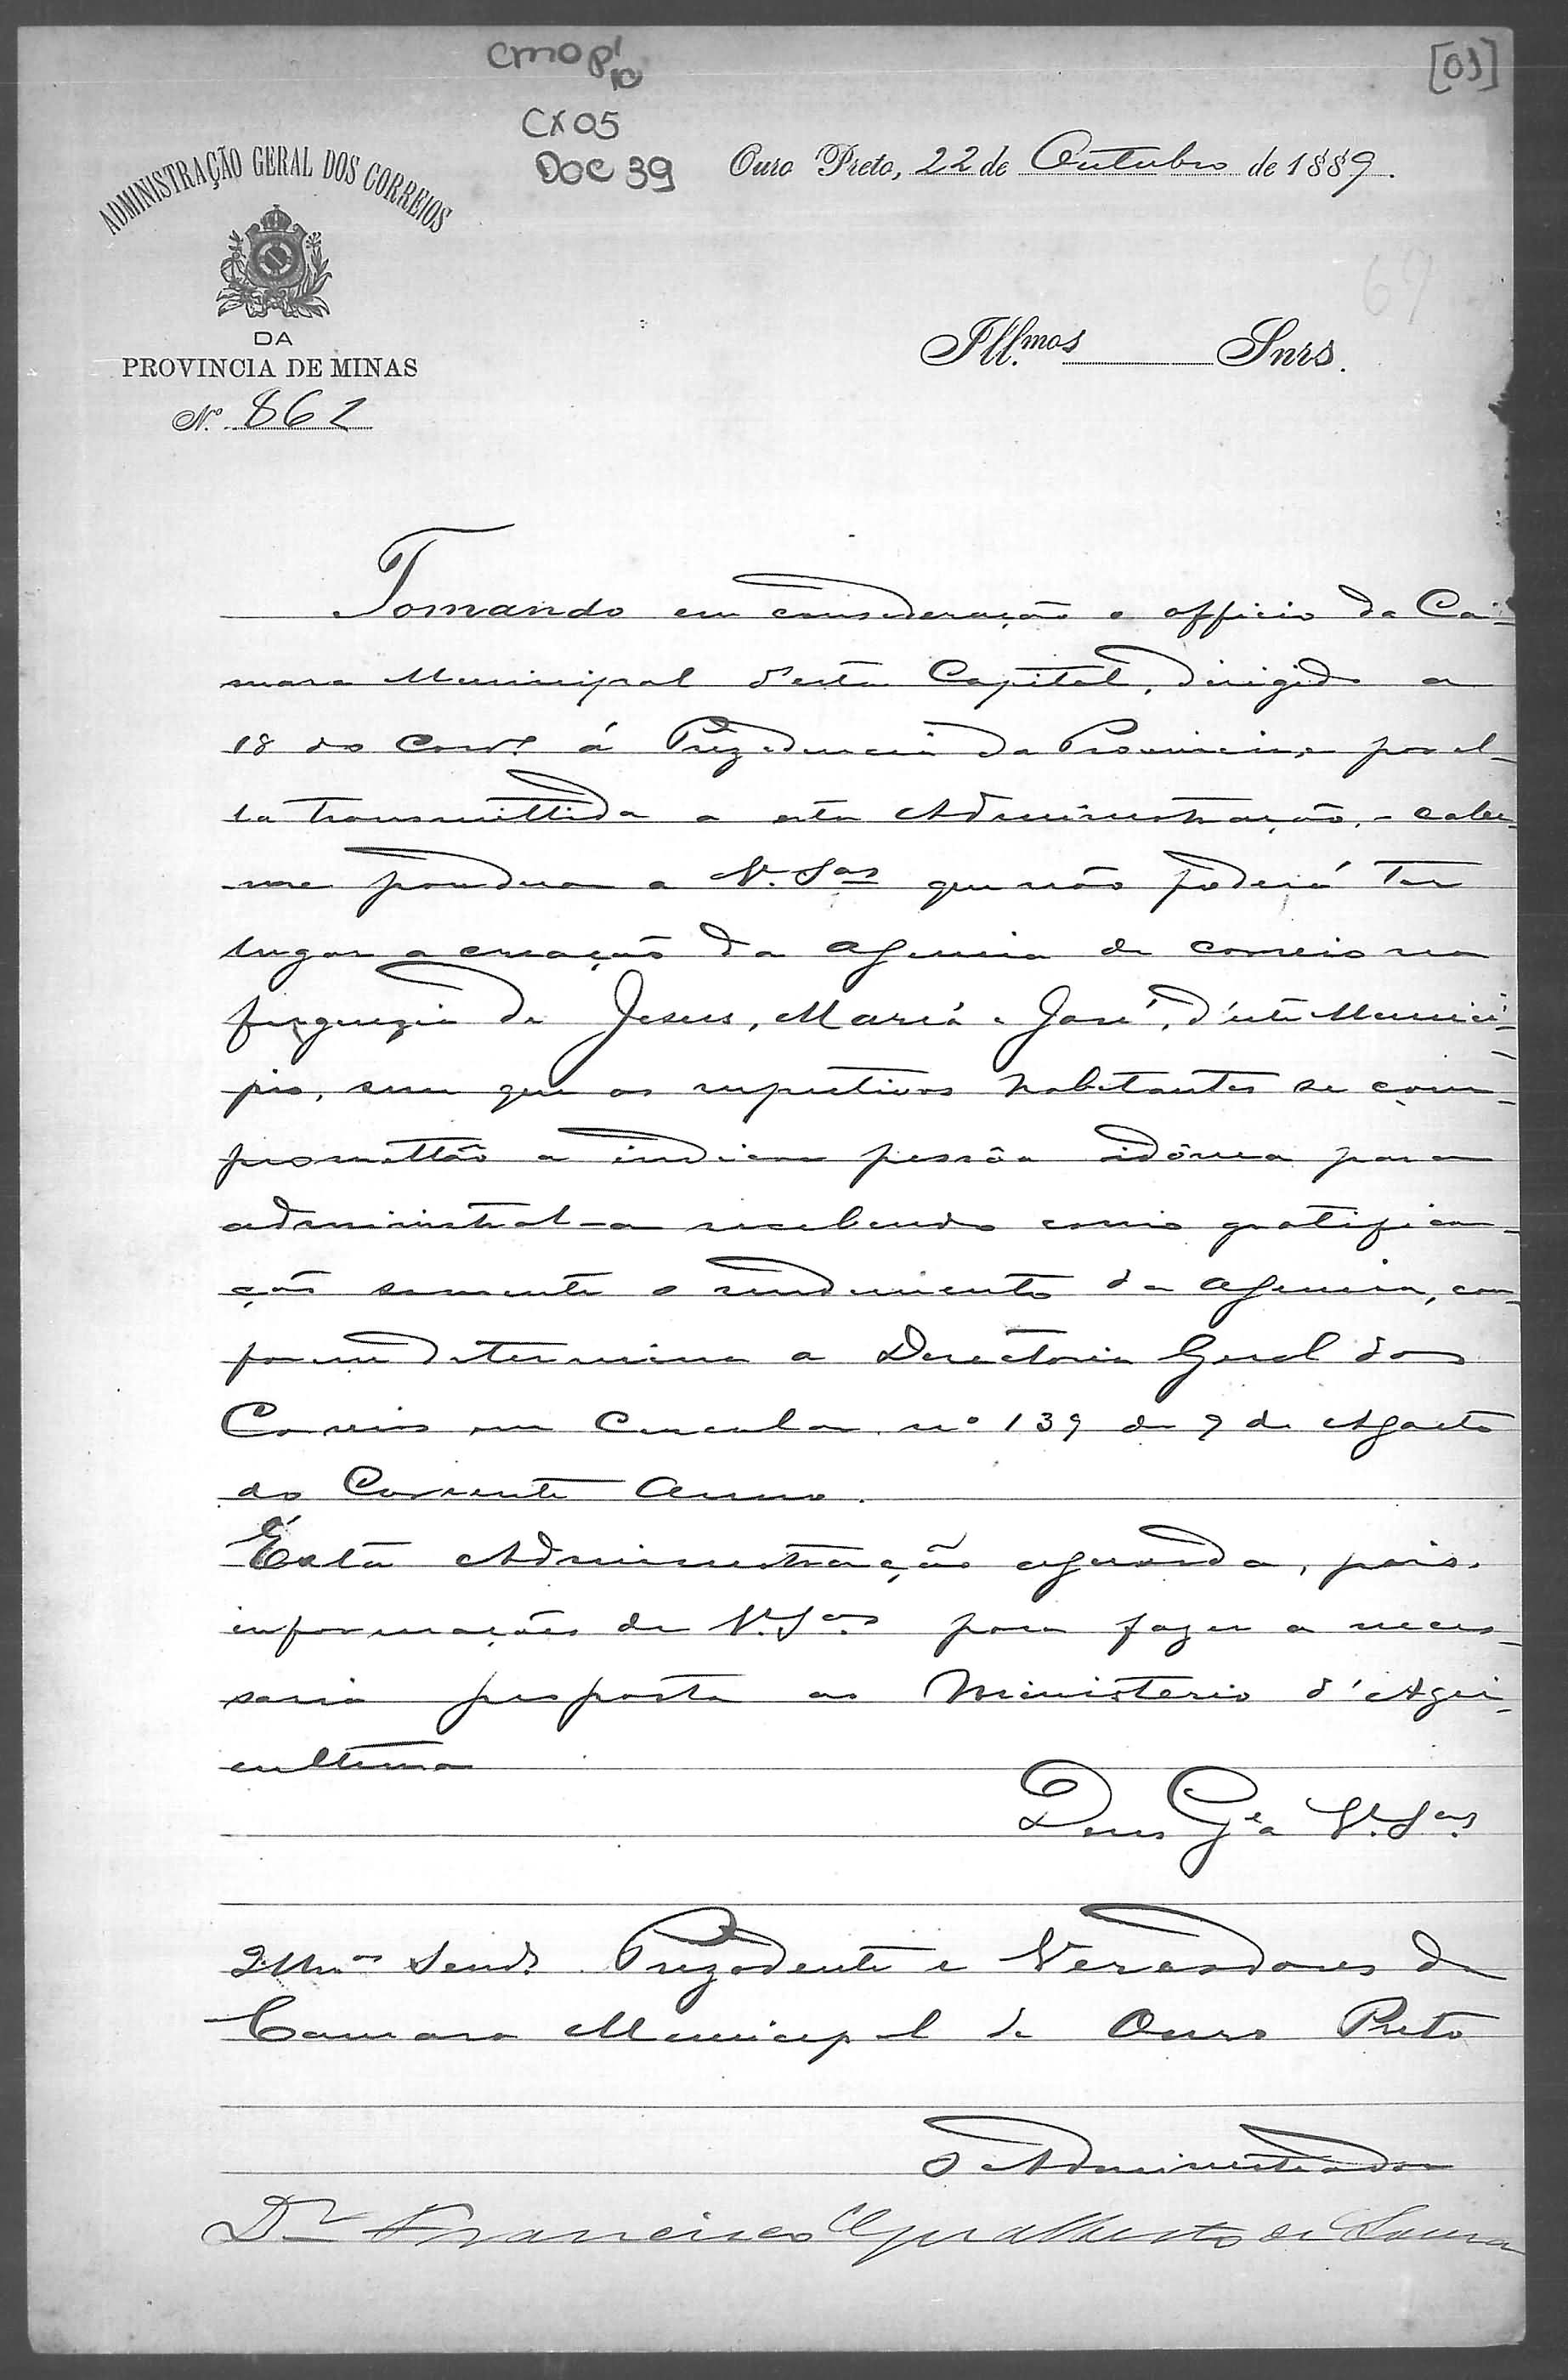 CMOP/10
[01]
CX 05
DOC 39
ADMINISTRAÇÃO GERAL DOS CORREIOS
DA
PROVINCIA DE MINAS
Nº 862
Ouro Preto, 22 de Outubro de 1889.
69
Ill.mos Snrs.
Tomando em consideração o officio da Ca-
mara Municipal d'esta Capital, dirigido a
18 do Corre á Prezidencia da Provincia, e por el-
la transmittida a esta Administração, - cabe-
me ponderar a V. Sas que não poderá ter
lugar a creação da agencia de correio na
freguezia de Jesus, Maria e José, d'este Munici-
pio, sem que os respectivos habitantes se com-
promettão a indicar pessôa idônea para
administral-a recebendo como gratifica-
ção somente o rendimento da agencia, con-
forme determina a Directoria Geral dos
Correios em Circular nº 139 de 9 de Agosto
do Corrente Anno.
Esta Administração aguarda, pois,
informações de V. Sas para fazer a neces-
saria proposta ao Ministerio d'Agri-
cultura
Deus Ge a V. Sas
Illmos Senrs Prezidente e Vereadores da
Camara Municipal de Ouro Preto
O Administrador
Dr Francisco de Souza